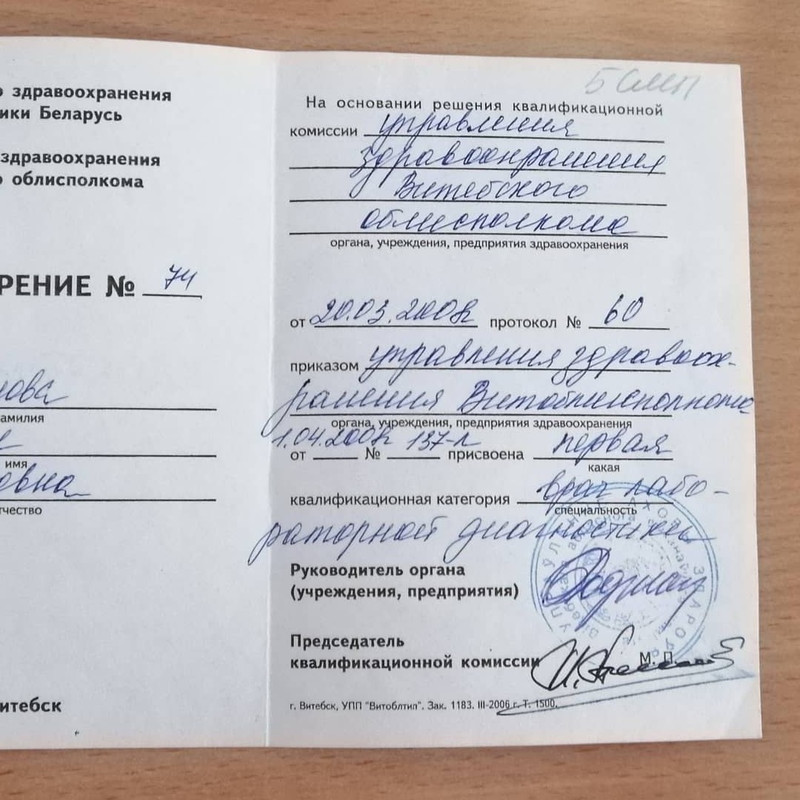 о здравоохранения
ики Беларусь
здравоохранения
о облисполкома
РЕНИЕ № 74
нова
амилия
имя
овна
тчество
итебск
БСМП
На основании решения квалификационной
комиссии управления
здравоохранения
Витебского
облисполкома
органа, учреждения, предприятия здравоохранения
от 20.03.2008 протокол № 60
приказом управления здравоох-
ранения Витоблисполкома
органа, учреждения, предприятия здравоохранения
от 1.04.2008 № 137-л присвоена первая
какая
квалификационная категория врач лабо-
специальность
раторной диагностики
Руководитель органа
(учреждения, предприятия)
Председатель
квалификационной комиссии
М. П.
г. Витебск, УПП "Витоблтип". Зак. 1183. III-2006 г. Т. 1500.